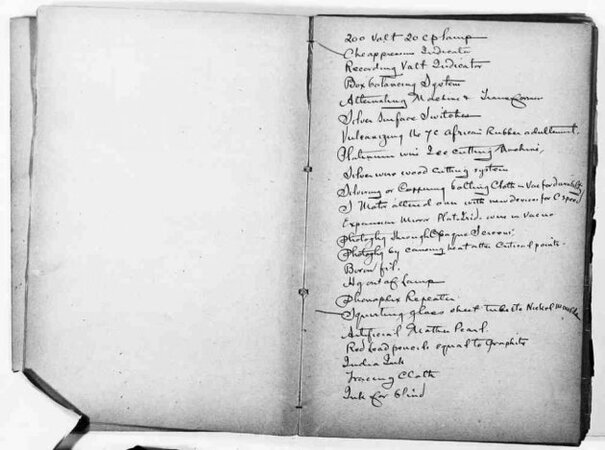 200 Valt 20 cp lamp
Cheap pressure Indicator
Recording Valt Indicator
Box balancing System
Alternating Machine & Transformer
Silver Surface Switches
Vulcanizing the 7c African Rubber adultment.
Platinum wire Ice Cutting Machine,
Silver wire wood cutting system
Silvering or Coppering bolting Cloth in Vac for durability
S Motor altered own with new devices for C speed
Expansion Mirror Plat Irid. wire in vacuo
Photoghy through Opaque Screens,
Photoghy by causing heat after Critical points-
Boron fil.
Hg out of Lamp
Phonoplex Repeater
Squirting glass sheet tubes to Nickel moulds
Artificial Mother Pearl.
Red Lead pencils equal to graphite
India Ink
Tracing Cloth
Ink for blind